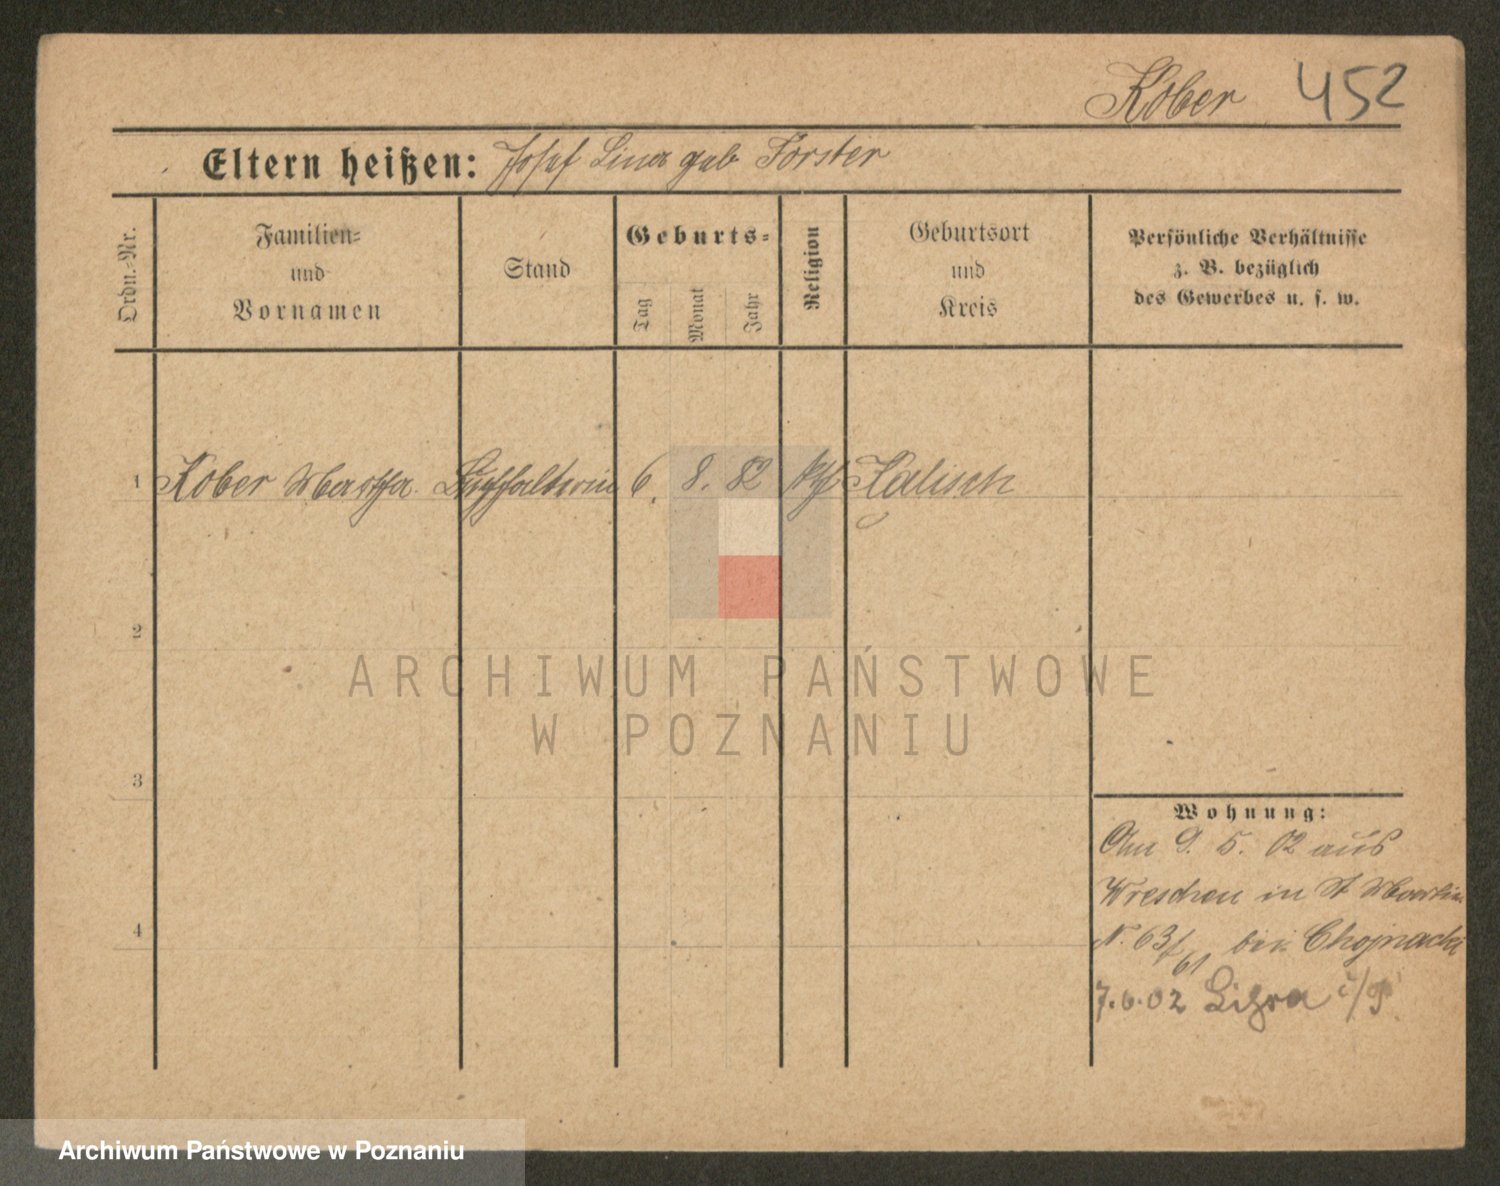 Kober 452
Eltern heißen: Josef Lina geb Forster
Ordn.-Nr.
Familien-
und
Vornamen
Stand
Geburts-
Tag
Monat
Jahr
Religion
Geburtsort
und
Kreis
Persönliche Verhältnisse
z. B. bezüglich
des Gewerbes u. s. w.
1 Kober Martha Buchhalterin 6. 8. 82 kth Kalisch
2
3
4
Wohnung:
Am 9. 5. 02 aus
Wreschen in St Martin
N. 63/61 bei Chojnacki
7.6.02
ARCHIWUM PAŃSTWOWE
W POZNANIU
Archiwum Państwowe w Poznaniu